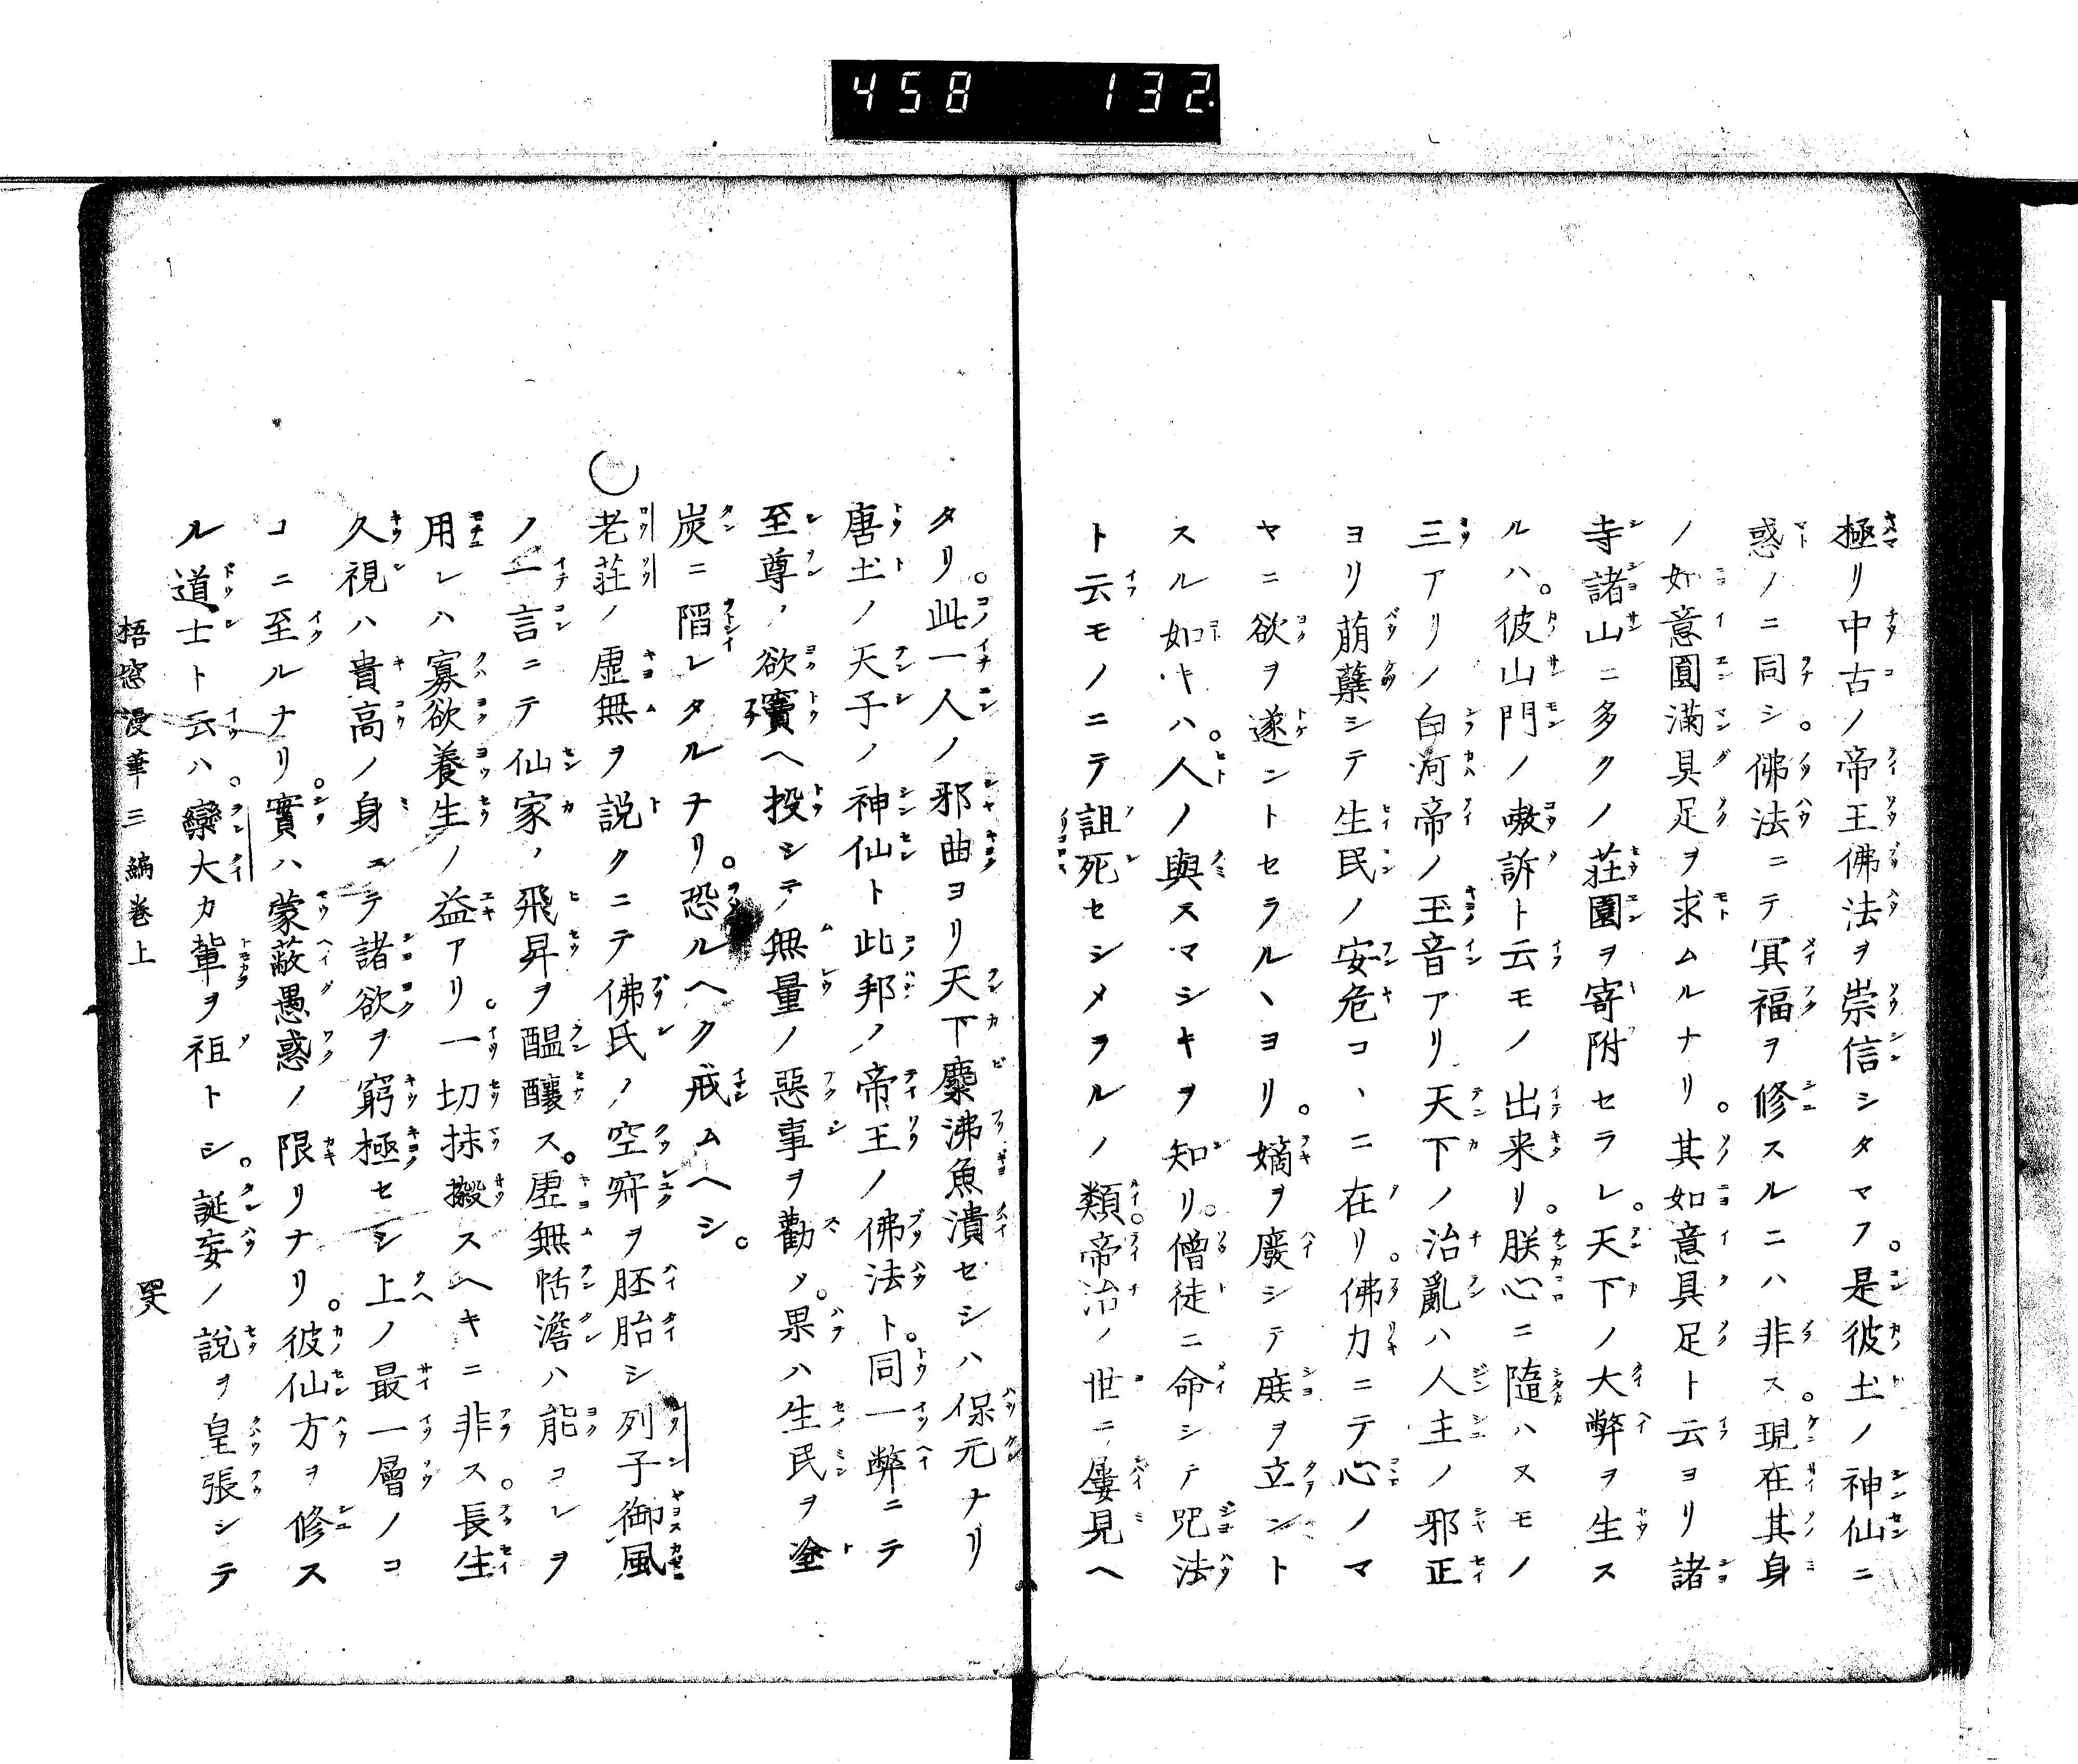 458 132
極リ中古ノ帝王佛法ヲ崇信シタマフ。是彼土ノ神仙ニ
惑ノニ同シ。佛法ニテ冥福ヲ修スルニハ非ス。現在其身
ノ如意圓滿具足ヲ求ムルナリ。其如意具足ト云ヨリ諸
寺諸山ニ多クノ莊園ヲ寄附セラレ。天下ノ大弊ヲ生ス
ルハ。彼山門ノ嗷訴ト云モノ出来リ。朕心ニ隨ハヌモノ
三アリノ白河帝ノ玉音アリ天下ノ治亂ハ人主ノ邪正
ヨリ萠蘖シテ生民ノ安危コヽニ在リ。佛力ニテ心ノマ
ヤニ欲ヲ遂ントセラルヽヨリ。嫡ヲ廢シテ庶ヲ立ント
スル如キハ。人ノ與スマシキヲ知リ。僧徒ニ命シテ咒法
ト云モノニテ詛死セシメラルノ類。帝治ノ世ニ屢見ヘ
タリ。此一人ノ邪曲ヨリ天下麋沸魚潰セシハ保元ナリ
唐土ノ天子ノ神仙ト此邦ノ帝王ノ佛法ト。同一弊ニテ
至尊ノ欲竇ヘ投シテ無量ノ惡事ヲ勸メ。果ハ生民ヲ塗
炭ニ䧟レタルナリ。恐ルヘク戒ムヘシ。
老莊ノ虚無ヲ説クニテ佛氏ノ空寂ヲ胚胎シ列子御風
ノ一言ニテ仙家ノ飛昇ヲ醞釀ス。虚無恬澹ハ能コレヲ
用レハ寡欲養生ノ益アリ。一切抹摋スヘキニ非ス。長生
久視ハ貴高ノ身ニテ諸欲ヲ窮極セシ上ノ最一層ノコ
コニ至ルナリ。實ハ蒙蔽愚惑ノ限リナリ。彼仙方ヲ修ス
ル道士ト云ハ。欒大カ輩ヲ祖トシ。誕妄ノ説ヲ皇張シテ
梧窓漫筆三編卷上